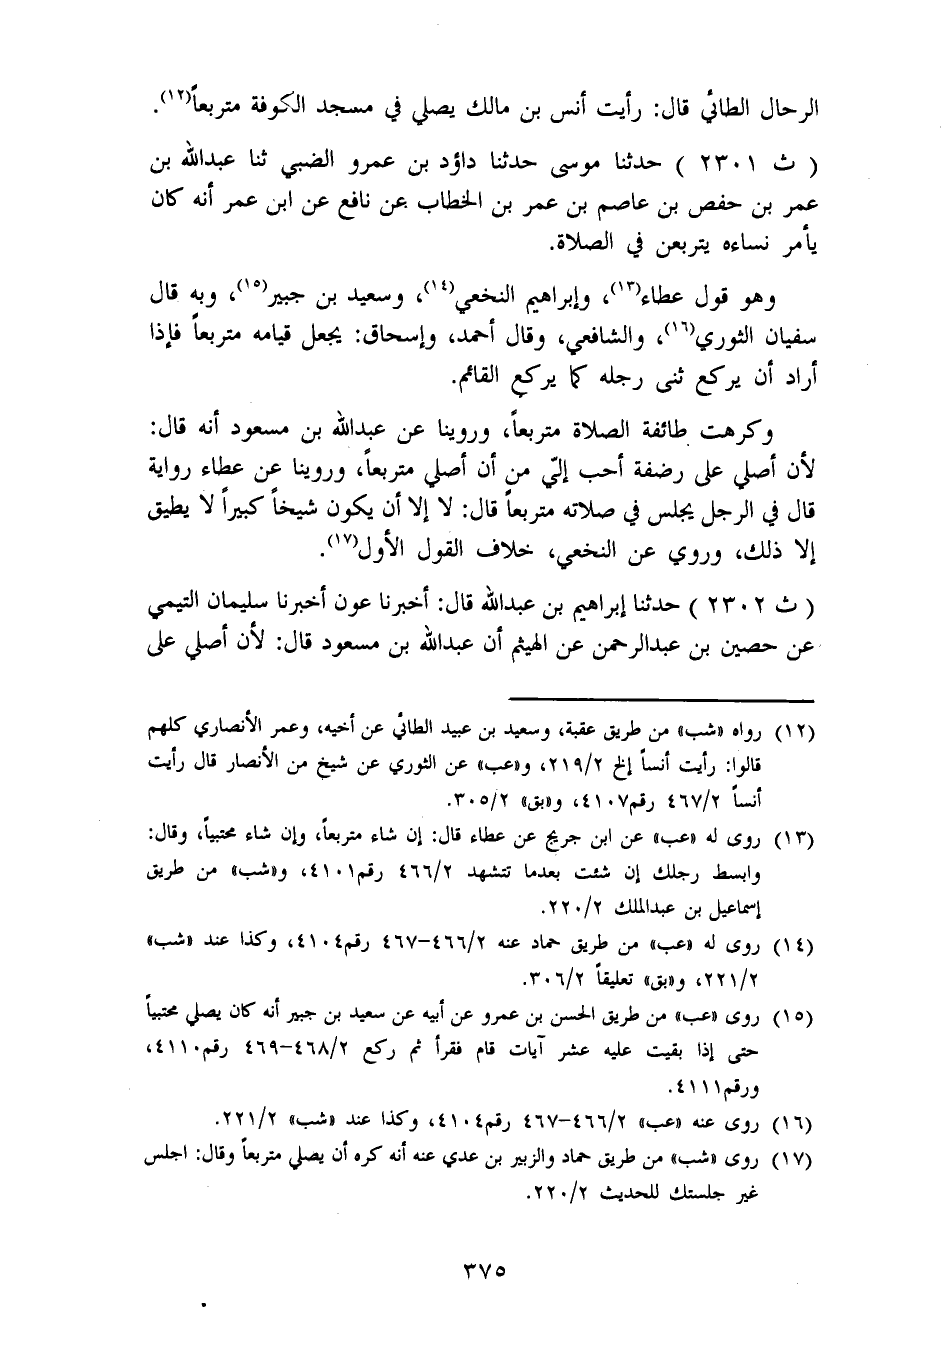 الرحال الطائي قال: رأيت أنس بن مالك يصلي في مسجد الكوفة متربعاً(١٢).
( ث ٢٣٠١ ) حدثنا موسى حدثنا داؤد بن عمرو الضبي ثنا عبدالله بن
عمر بن حفص بن عاصم بن عمر بن الخطاب عن نافع عن ابن عمر أنه كان
يأمر نساءه يتربعن في الصلاة.
وهو قول عطاء(١٣)، وإبراهيم النخعي(١٤)، وسعيد بن جبير(١٥)، وبه قال
سفيان الثوري(١٦)، والشافعي، وقال أحمد، وإسحاق: يجعل قيامه متربعاً فإذا
أراد أن يركع ثنى رجله كما يركع القائم.
وكرهت طائفة الصلاة متربعاً، وروينا عن عبدالله بن مسعود أنه قال:
لأن أصلي على رضفة أحب إليّ من أن أصلي متربعاً، وروينا عن عطاء رواية
قال في الرجل يجلس في صلاته متربعاً قال: لا إلا أن يكون شيخاً كبيراً لا يطيق
إلا ذلك، وروي عن النخعي، خلاف القول الأول(١٧).
( ث ٢٣٠٢ ) حدثنا إبراهيم بن عبدالله قال: أخبرنا عون أخبرنا سليمان التيمي
عن حصين بن عبدالرحمن عن الهيثم أن عبدالله بن مسعود قال: لأن أصلي على
(١٢) رواه «شب» من طريق عقبة، وسعيد بن عبيد الطائي عن أخيه، وعمر الأنصاري كلهم
قالوا: رأيت أنساً إلخ ٢١٩/٢، و«عب» عن الثوري عن شيخ من الأنصار قال رأيت
أنساً ٤٦٧/٢ رقم٤١٠٧، و«بق» ٣٠٥/٢.
(١٣) روى له «عب» عن ابن جريج عن عطاء قال: إن شاء متربعاً، وإن شاء محتبياً، وقال:
وابسط رجلك إن شئت بعدما تتشهد ٤٦٦/٢ رقم٤١٠١، و«شب» من طريق
إسماعيل بن عبدالملك ٢٢٠/٢.
(١٤) روى له «عب» من طريق حماد عنه ٤٦٦/٢-٤٦٧ رقم٤١٠٤، وكذا عند «شب»
٢٢١/٢، و«بق» تعليقاً ٣٠٦/٢.
(١٥) روى «عب» من طريق الحسن بن عمرو عن أبيه عن سعيد بن جبير أنه كان يصلي محتبياً
حتى إذا بقيت عليه عشر آيات قام فقرأ ثم ركع ٤٦٨/٢-٤٦٩ رقم٤١١٠،
ورقم٤١١١.
(١٦) روى عنه «عب» ٤٦٦/٢-٤٦٧ رقم٤١٠٤، وكذا عند «شب» ٢٢١/٢.
(١٧) روى «شب» من طريق حماد والزبير بن عدي عنه أنه كره أن يصلي متربعاً وقال: اجلس
غير جلستك للحديث ٢٢٠/٢.
٣٧٥